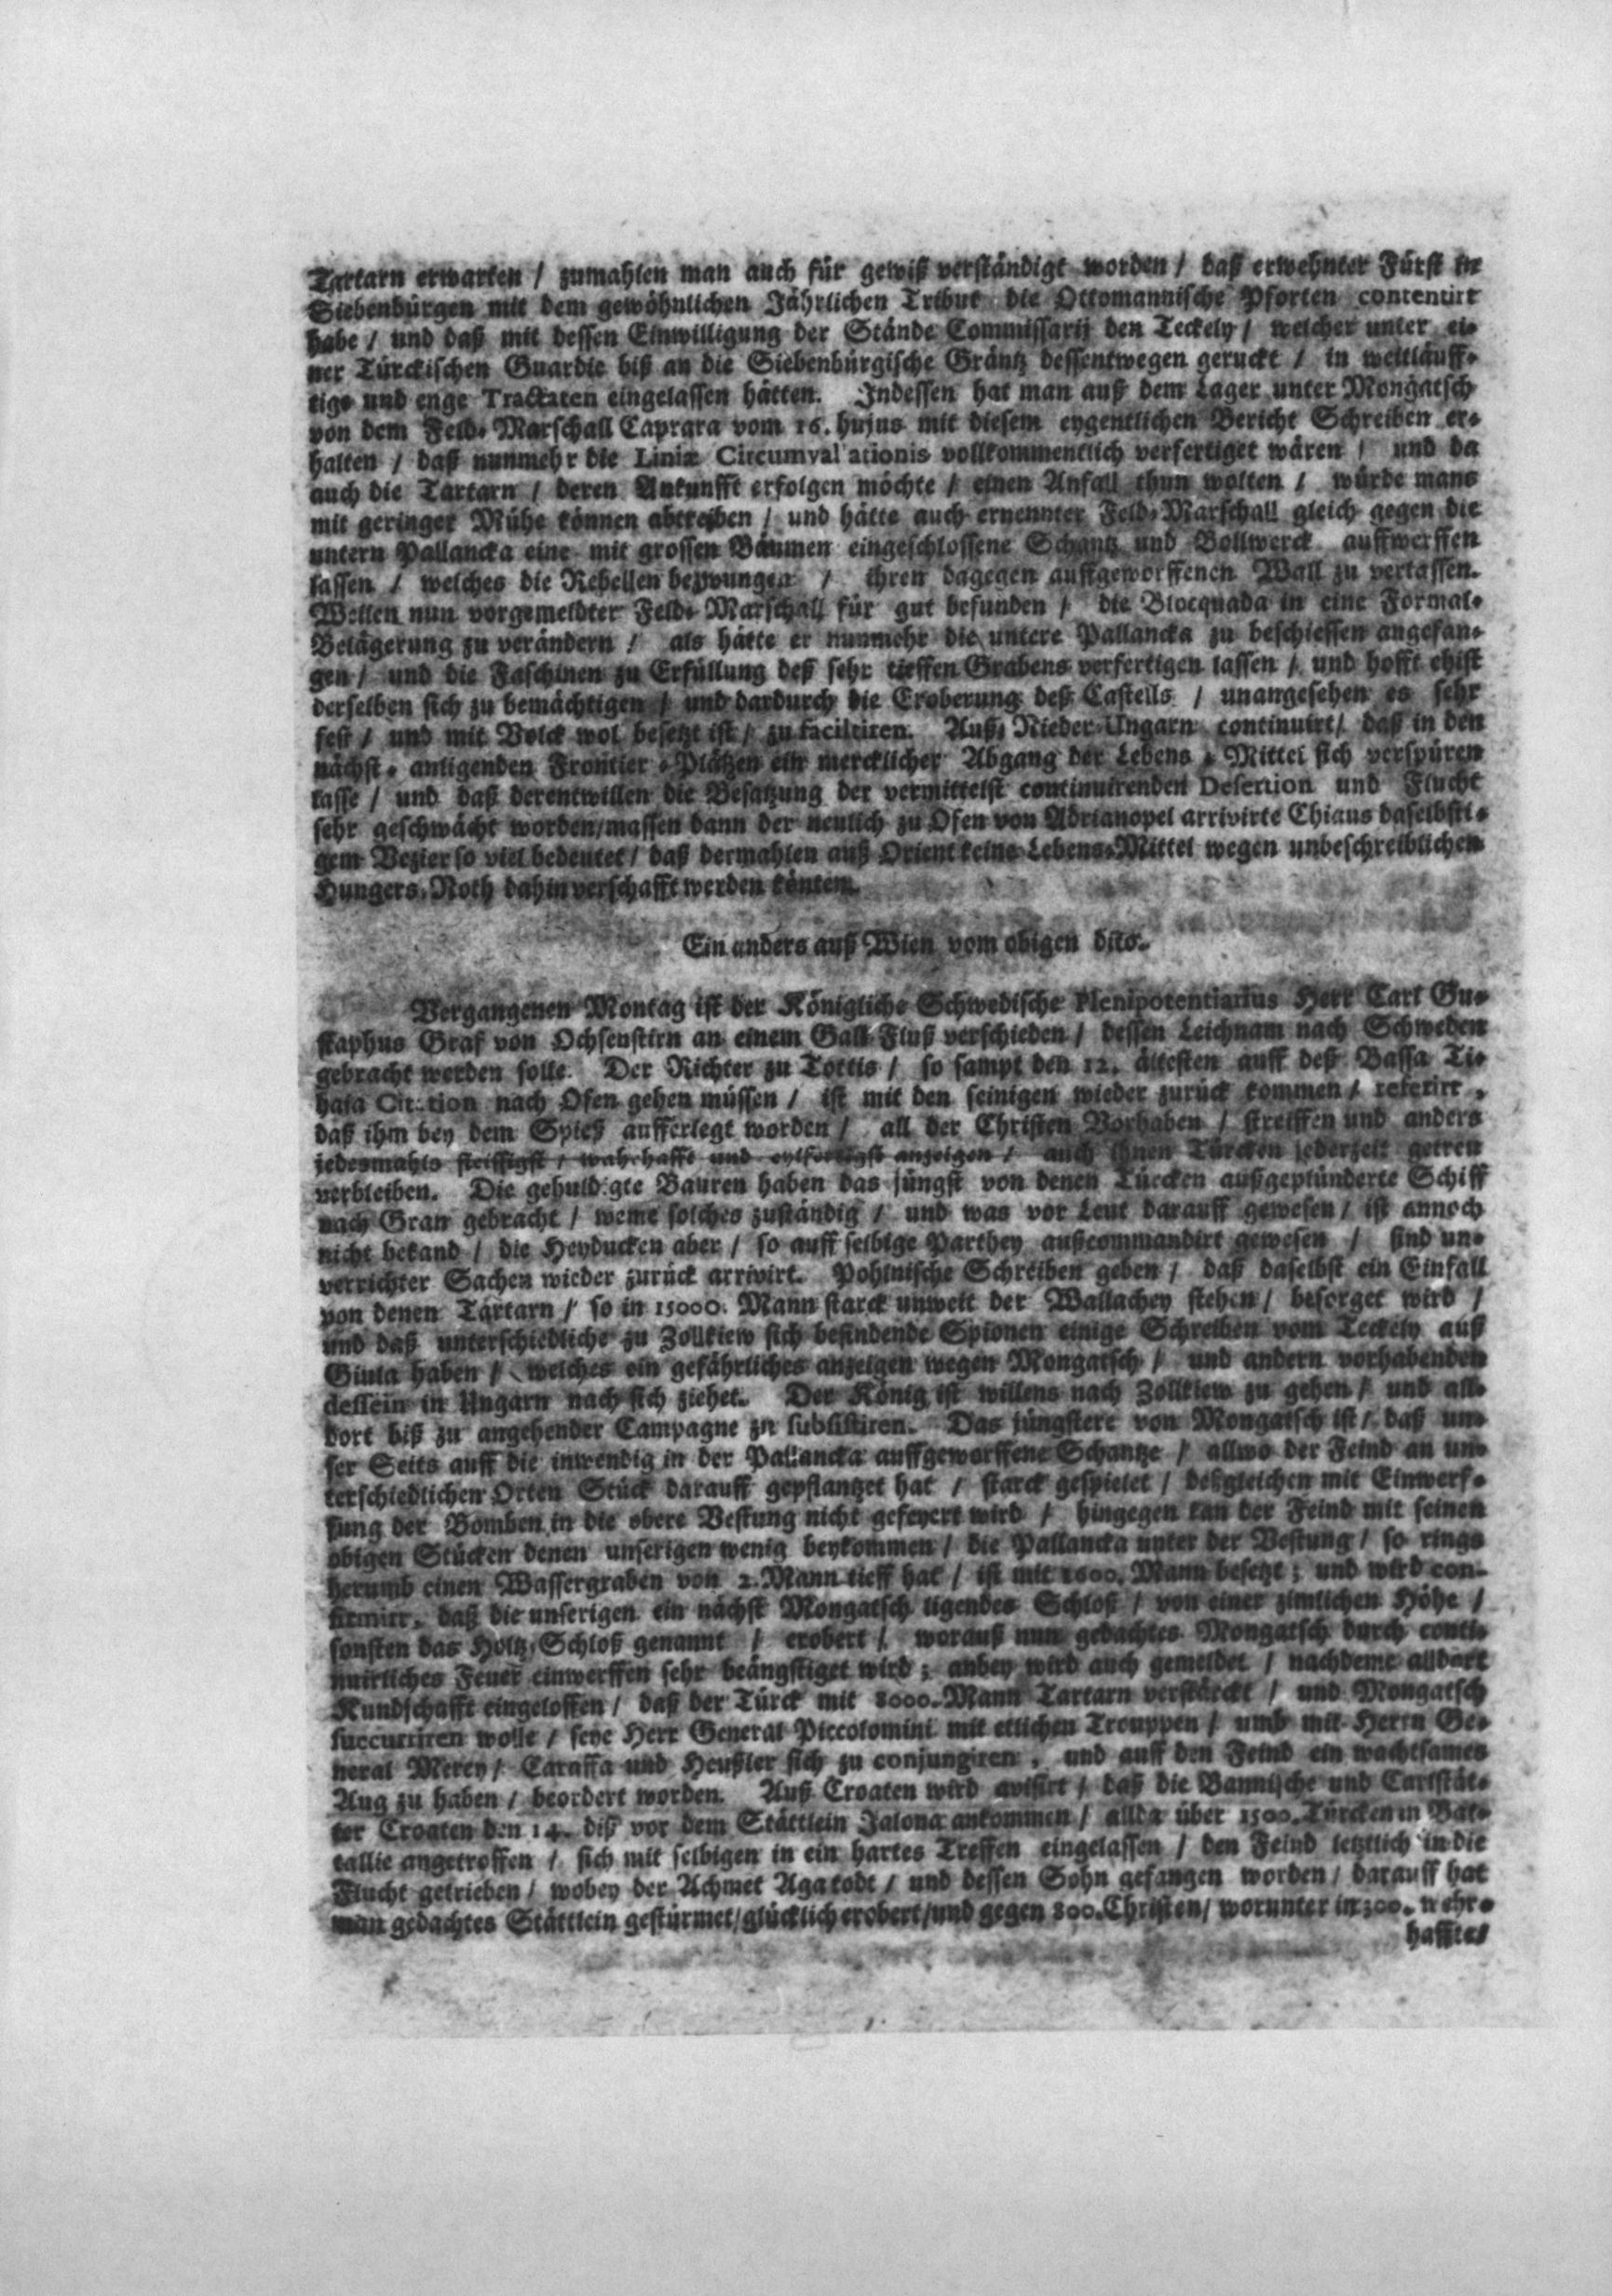 Tartarn erwarten / zumahlen man auch für gewiß verständigt worden / daß erwehnter Fürst in
Siebenbürgen mit dem gewöhnlichen Jährlichen Tribut die Ottomannische Pforten contentirt
habe / und daß mit dessen Einwilligung der Stände Commissarij den Teckely / welcher unter ei-
ner Türckischen Guardie biß an die Siebenbürgische Gräntz dessentwegen geruckt / in weitläuff-
tige und enge Tractaten eingelassen hätten. Indessen hat man auß dem Lager unter Mongatsch
von dem Feld-Marschall Caprara vom 16. hujus mit diesem eygentlichen Bericht Schreiben er-
halten / daß nunmehr die Liniæ Circumvalationis vollkommentlich verfertiget wären / und da
auch die Tartarn / deren Ankunfft erfolgen möchte / einen Anfall thun wolten / würde mans
mit geringer Mühe können abtreiben / und hätte auch ernennter Feld-Marschall gleich gegen die
untern Pallancka eine mit grossen Bäumen eingeschlossene Schantz und Bollwerck auffwerffen
lassen / welches die Rebellen bezwungen / ihren dagegen auffgeworffenen Wall zu verlassen.
Weilen nun vorgemeldter Feld-Marschall für gut befunden / die Blocquada in eine Formal-
Belägerung zu verändern / als hätte er nunmehr die untere Pallancka zu beschiessen angefan-
gen / und die Faschinen zu Erfüllung deß sehr tieffen Grabens verfertigen lassen / und hofft ehist
derselben sich zu bemächtigen / und dardurch die Eroberung deß Castells / unangesehen es sehr
fest / und mit Volck wol besetzt ist / zu facilitiren. Auß Nieder-Ungarn continuirt / daß in den
nächst-anligenden Frontier-Plätzen ein mercklicher Abgang der Lebens-Mittel sich verspüren
lasse / und daß derentwillen die Besatzung der vermittelst continuirenden Desertion und Flucht
sehr geschwächt worden/massen dann der neulich zu Ofen von Adrianopel arrivirte Chiaus daselbsti-
gem Vezier so viel bedeutet / daß dermahlen auß Orient keine Lebens-Mittel wegen unbeschreiblichen
Hungers-Noth dahin verschafft werden könten.
Ein anders auß Wien vom obigen dito.
Vergangenen Montag ist der Königliche Schwedische Plenipotentiarius Herr Carl Gu-
staphus Graf von Ochsenstirn an einem Gall-Fluß verschieden / dessen Leichnam nach Schweden
gebracht werden solle. Der Richter zu Tottis / so sampt den 12. ältesten auff deß Bassa Ti-
haia Citation nach Ofen gehen müssen / ist mit den seinigen wieder zurück kommen / referirt,
daß ihm bey dem Spieß aufferlegt worden / all der Christen Vorhaben / streiffen und anders
jedesmahls fleissigst / wahrhafft und eylfertigst anzeigen / auch ihnen Türcken jederzeit getreu
verbleiben. Die gehuldigte Bauren haben das jüngst von denen Türcken außgeplünderte Schiff
nach Gran gebracht / weme solches zuständig / und was vor Leut darauff gewesen / ist annoch
nicht bekand / die Heyducken aber / so auff selbige Parthey außcommandirt gewesen / sind un-
verrichter Sachen wieder zurück arrivirt. Pohlnische Schreiben geben / daß daselbst ein Einfall
von denen Tartarn / so in 15000. Mann starck unweit der Wallachey stehen / besorget wird /
und daß unterschiedliche zu Zolkiew sich befindende Spionen einige Schreiben vom Teckely auß
Giula haben / welches ein gefährliches anzeigen wegen Mongatsch / und andern vorhabenden
dessein in Ungarn nach sich ziehet. Der König ist willens nach Zolkiew zu gehen / und all-
dort biß zu angehender Campagne zu subsistiren. Das jüngstere von Mongatsch ist / daß un-
ser Seits auff die inwendig in der Pallancka auffgeworffene Schantze / allwo der Feind an un-
terschiedlichen Orten Stück darauff gepflantzet hat / starck gespielet / deßgleichen mit Einwerf-
fung der Bomben in die obere Vestung nicht gefeyert wird / hingegen kan der Feind mit seinen
obigen Stücken denen unserigen wenig beykommen / die Pallancka unter der Vestung / so rings
herumb einen Wassergraben von 2. Mann tieff hat / ist mit Mann besetzt; und wird con-
firmirt, daß die unserigen ein nächst Mongatsch ligendes Schloß / von einer zimlichen Höhe /
sonsten das Holtz-Schloß genannt / erobert / worauß nun gedachtes Mongatsch durch conti-
nuirliches Feuer einwerffen sehr beängstiget wird; anbey wird auch gemeldet / nachdeme alldort
Kundschafft eingeloffen / daß der Türck mit 8000. Mann Tartarn verstärckt / und Mongatsch
succurriren wolle / seye Herr General Piccolomini mit etlichen Trouppen / umb mit Herrn Ge-
neral Mercy / Caraffa und Heußler sich zu conjungiren, und auff den Feind ein wachtsames
Aug zu haben / beordert worden. Auß Croaten wird avisirt / daß die Bannische und Carlstät-
ter Croaten den 14. diß vor dem Stättlein Jalona ankommen / allda über 1500. Türcken in Bat-
tallie angetroffen / sich mit selbigen in ein hartes Treffen eingelassen / den Feind letztlich in die
Flucht getrieben / wobey der Achmet Aga todt / und dessen Sohn gefangen worden / darauff hat
man gedachtes Stättlein gestürmet/glücklich erobert/und gegen 800. Christen/ worunter in 300. wehr-
haffte/